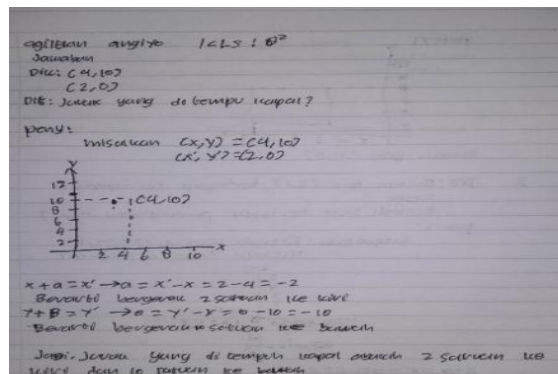 agiliban angito KLS : 8²
Jawaban
Dik: (4,10)
(2,0)
Dit: Jarak yang di tempu kapal?
peny:
misalkan (x,y) = (4,10)
(x', y') = (2,0)
Y
12
10 (4,10)
8
6
4
2
2 4 6 8 10 x
x + a = x' → a = x' - x = 2 - 4 = -2
Berarti bergerak 2 satuan ke kiri
y + B = y' → B = y' - y = 0 - 10 = -10
Berarti bergerak satuan ke bawah
Jadi, Jarak yang di tempuh kapal adalah 2 satuan ke
kiri dan 10 satuan ke bawah